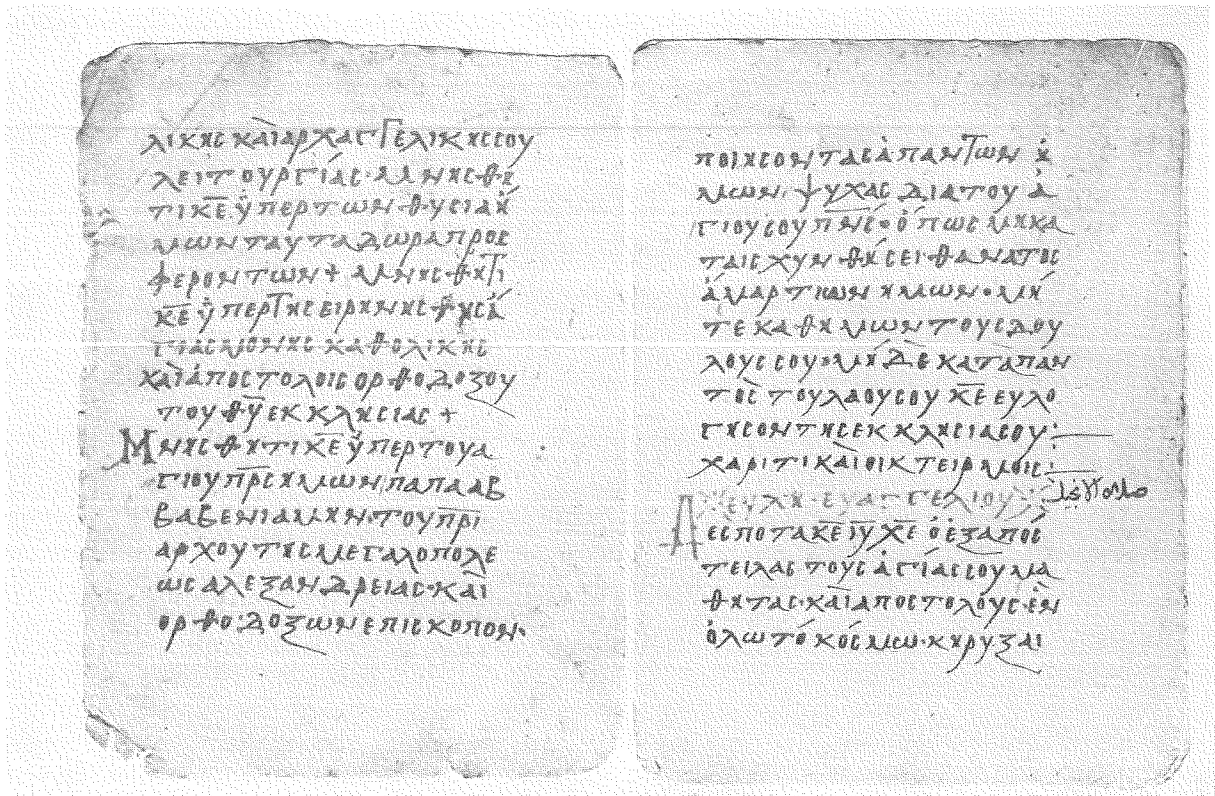 λικης καὶ αρχαγΓελικης σου
λειτουργίας· μνησθη
τι κ̅ε̅ ὑπερ των θυσιαὴ
μων ταυτα δωρα προσ
φεροντων + μνησθητι
κ̅ε̅ ὑ περ της ειρηνης
μονης καθολικης
καὶ ἀποστολοις ορθοδοξου
του θ̅υ̅ εκκλησιας +
Μνησθητι κ̅ε̅ ὑπερ του α
γιου π̅ρ̅ς ημων παπα αβ
βα βενιαμην· του π̅ρ̅ι
αρχου της μεγαλοπολε
ως αλεξανδρειας· καὶ
ορθο·δοξων επισκοπον·
ποιησον τας ἁπαντων ἡ
μων· ψυχας δια του ἁ
γιου σου π̅ν̅ς· ὁπως μη κα
ταισχυνθήσει θανατος
ἁμαρτιων ημων· μή
τε καθ ημων τους δου
λους σου· μή δε κατα παν
τος του λαου σου κ̅ε̅ ευλο
γησον της εκκλησιας σου:
χαριτι καὶ οικτειρμοις:
ευχη· ευαγγελιου
صلوه الانجيل
Δεσποτα κ̅ε̅ ι̅υ̅ χ̅ε̅ ὁ ἐξαποσ
τειλας τους ἁγίας σου μα
θητας· καὶ αποστολους· ἐν
ὁλω τό κόσμω· κηρυξαι